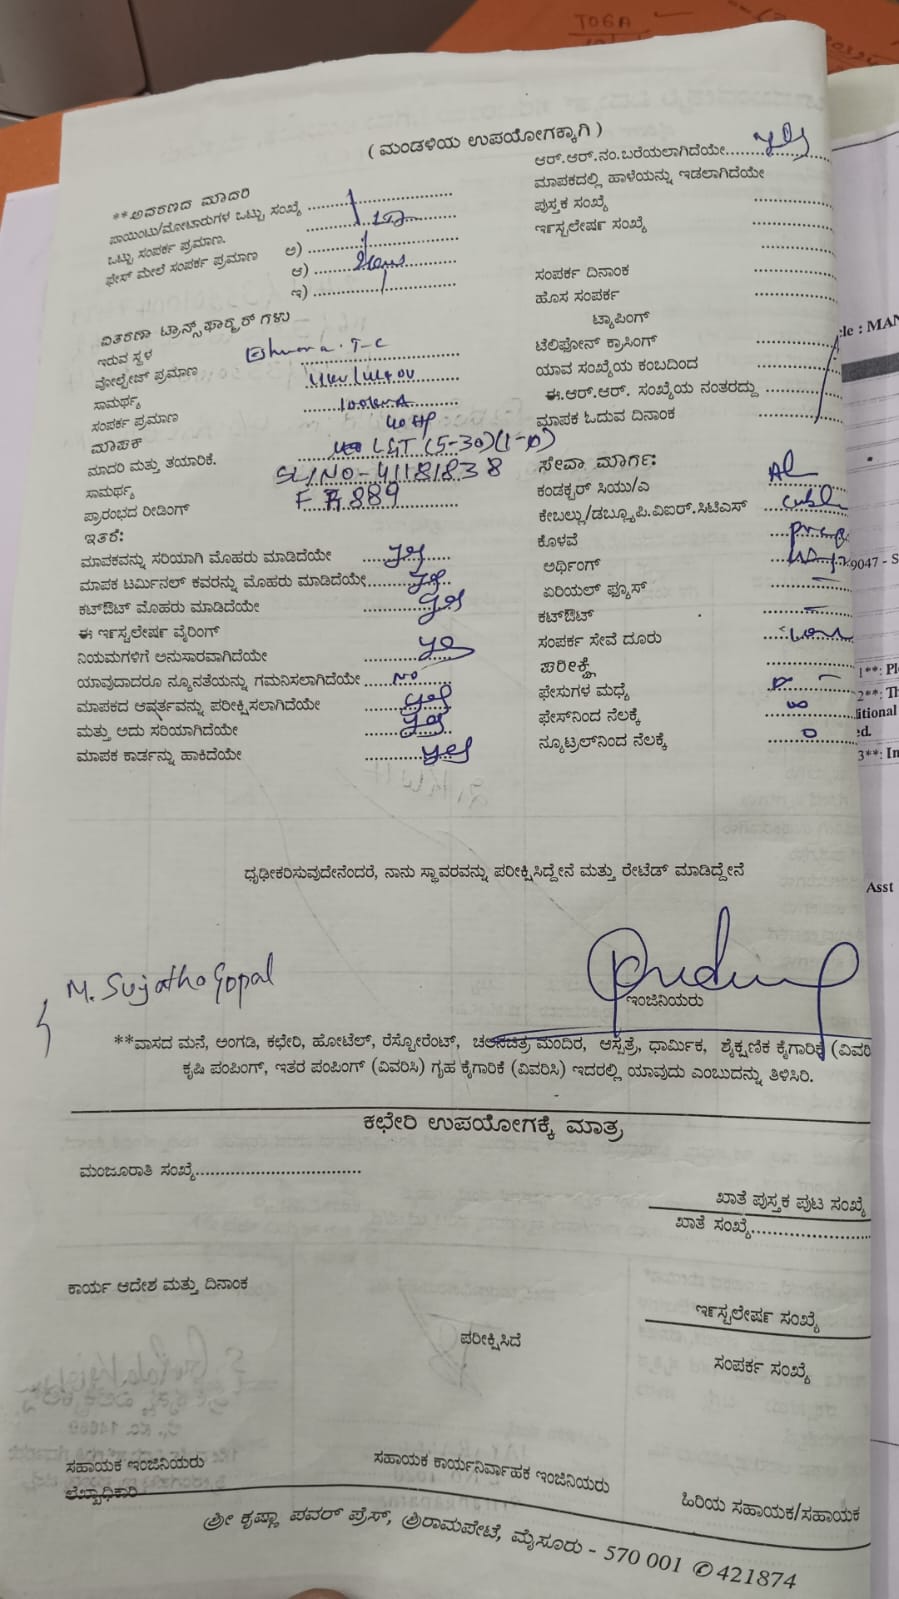 TOGA
( ಮಂಡಳಿಯ ಉಪಯೋಗಕ್ಕಾಗಿ )
**ಆವರಣದ ಮಾದರಿ
ಪಾಯಿಂಟು/ಮೋಟಾರುಗಳ ಒಟ್ಟು ಸಂಖ್ಯೆ
ಒಟ್ಟು ಸಂಪರ್ಕ ಪ್ರಮಾಣ.
ಫೇಸ್ ಮೇಲೆ ಸಂಪರ್ಕ ಪ್ರಮಾಣ ಅ)
ಆ)
ಇ)
ವಿತರಣಾ ಟ್ರಾನ್ಸ್‌ಫಾರ್‍ಮರ್ ಗಳು
ಇರುವ ಸ್ಥಳ T-C
ವೋಲ್ಟೇಜ್ ಪ್ರಮಾಣ
ಸಾಮರ್ಥ್ಯ 100kVA
ಸಂಪರ್ಕ ಪ್ರಮಾಣ 40 HP
ಮಾಪಕ
ಮಾದರಿ ಮತ್ತು ತಯಾರಿಕೆ. L&T (5-30)
ಸಾಮರ್ಥ್ಯ SL/NO-41181838
ಪ್ರಾರಂಭದ ರೀಡಿಂಗ್ 889
ಇತರೆ:
ಮಾಪಕವನ್ನು ಸರಿಯಾಗಿ ಮೊಹರು ಮಾಡಿದೆಯೇ yes
ಮಾಪಕ ಟರ್ಮಿನಲ್ ಕವರನ್ನು ಮೊಹರು ಮಾಡಿದೆಯೇ yes
ಕಟ್‌ಔಟ್ ಮೊಹರು ಮಾಡಿದೆಯೇ yes
ಈ ಇನ್‌ಸ್ಟಲೇಷನ್ ವೈರಿಂಗ್
ನಿಯಮಗಳಿಗೆ ಅನುಸಾರವಾಗಿದೆಯೇ yes
ಯಾವುದಾದರೂ ನ್ಯೂನತೆಯನ್ನು ಗಮನಿಸಲಾಗಿದೆಯೇ NO
ಮಾಪಕದ ಆವರ್ತವನ್ನು ಪರೀಕ್ಷಿಸಲಾಗಿದೆಯೇ yes
ಮತ್ತು ಅದು ಸರಿಯಾಗಿದೆಯೇ yes
ಮಾಪಕ ಕಾರ್ಡನ್ನು ಹಾಕಿದೆಯೇ yes
ಆರ್.ಆರ್.ನಂ.ಬರೆಯಲಾಗಿದೆಯೇ yes
ಮಾಪಕದಲ್ಲಿ ಹಾಳೆಯನ್ನು ಇಡಲಾಗಿದೆಯೇ
ಪುಸ್ತಕ ಸಂಖ್ಯೆ
ಇನ್‌ಸ್ಟಲೇಷನ್ ಸಂಖ್ಯೆ
ಸಂಪರ್ಕ ದಿನಾಂಕ
ಹೊಸ ಸಂಪರ್ಕ
ಟ್ಯಾಪಿಂಗ್
ಟೆಲಿಫೋನ್ ಕ್ರಾಸಿಂಗ್
ಯಾವ ಸಂಖ್ಯೆಯ ಕಂಬದಿಂದ
ಈ.ಆರ್.ಆರ್. ಸಂಖ್ಯೆಯ ನಂತರದ್ದು
ಮಾಪಕ ಓದುವ ದಿನಾಂಕ
ಸೇವಾ ಮಾರ್ಗ:
ಕಂಡಕ್ಟರ್ ಸಿಯು/ಎ Al
ಕೇಬಲ್ಲು/ಡಬ್ಲ್ಯೂಪಿ.ವಿಐಆರ್.ಸಿಟಿಎಸ್
ಕೊಳವೆ
ಅರ್ಥಿಂಗ್
ಏರಿಯಲ್ ಫ್ಯೂಸ್
ಕಟ್‌ಔಟ್
ಸಂಪರ್ಕ ಸೇವೆ ದೂರು
ಪರೀಕ್ಷೆ
ಫೇಸುಗಳ ಮಧ್ಯೆ
ಫೇಸ್‌ನಿಂದ ನೆಲಕ್ಕೆ ∞
ನ್ಯೂಟ್ರಲ್‌ನಿಂದ ನೆಲಕ್ಕೆ 0
cle : MAN
9047 - S
1**: Pl
2**: Th
ditional
ed.
3**: In
Asst
ಧೃಢೀಕರಿಸುವುದೇನೆಂದರೆ, ನಾನು ಸ್ಥಾವರವನ್ನು ಪರೀಕ್ಷಿಸಿದ್ದೇನೆ ಮತ್ತು ರೇಟೆಡ್ ಮಾಡಿದ್ದೇನೆ
M. Sujatha Gopal
ಇಂಜಿನಿಯರು
**ವಾಸದ ಮನೆ, ಅಂಗಡಿ, ಕಛೇರಿ, ಹೋಟೆಲ್, ರೆಸ್ಟೋರೆಂಟ್, ಚಲನಚಿತ್ರ ಮಂದಿರ, ಆಸ್ಪತ್ರೆ, ಧಾರ್ಮಿಕ, ಶೈಕ್ಷಣಿಕ ಕೈಗಾರಿಕೆ (ವಿವರಿ
ಕೃಷಿ ಪಂಪಿಂಗ್, ಇತರ ಪಂಪಿಂಗ್ (ವಿವರಿಸಿ) ಗೃಹ ಕೈಗಾರಿಕೆ (ವಿವರಿಸಿ) ಇದರಲ್ಲಿ ಯಾವುದು ಎಂಬುದನ್ನು ತಿಳಿಸಿರಿ.
ಕಛೇರಿ ಉಪಯೋಗಕ್ಕೆ ಮಾತ್ರ
ಮಂಜೂರಾತಿ ಸಂಖ್ಯೆ
ಖಾತೆ ಪುಸ್ತಕ ಪುಟ ಸಂಖ್ಯೆ
ಖಾತೆ ಸಂಖ್ಯೆ
ಕಾರ್ಯ ಆದೇಶ ಮತ್ತು ದಿನಾಂಕ
ಇನ್‌ಸ್ಟಲೇಷನ್ ಸಂಖ್ಯೆ
ಪರೀಕ್ಷಿಸಿದೆ
ಸಂಪರ್ಕ ಸಂಖ್ಯೆ
ಸಹಾಯಕ ಇಂಜಿನಿಯರು
ಲೆಖ್ಖಾಧಿಕಾರಿ
ಸಹಾಯಕ ಕಾರ್ಯನಿರ್ವಾಹಕ ಇಂಜಿನಿಯರು
ಹಿರಿಯ ಸಹಾಯಕ/ಸಹಾಯಕ
ಶ್ರೀ ಕೃಷ್ಣಾ ಪವರ್ ಪ್ರೆಸ್, ಶ್ರೀರಾಮಪೇಟೆ, ಮೈಸೂರು - 570 001 ✆421874